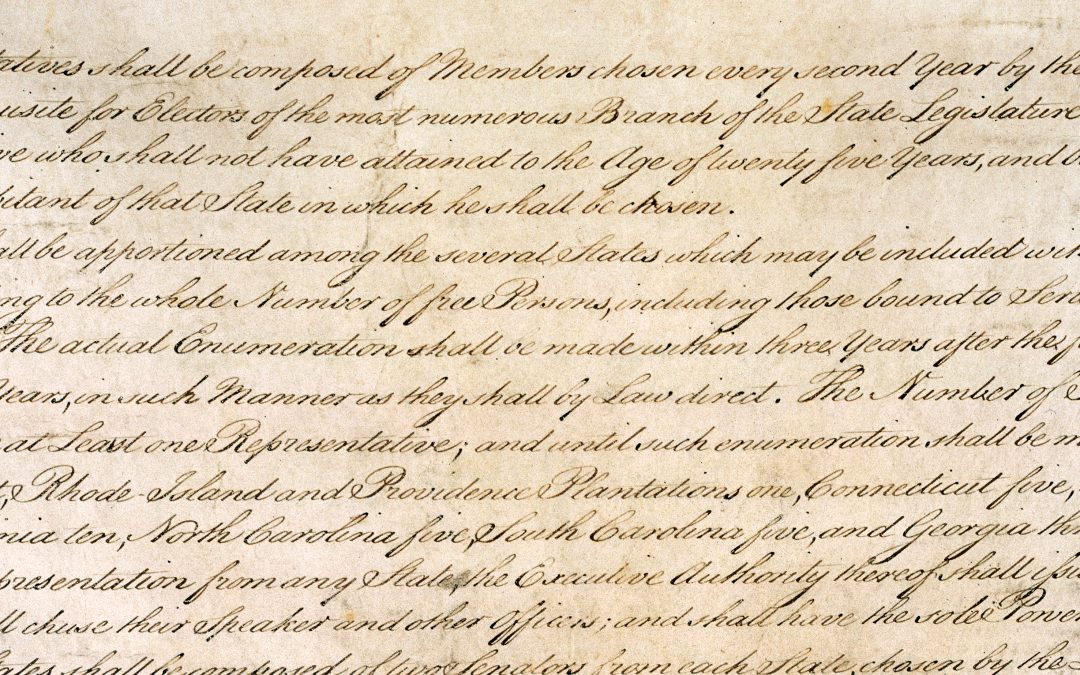 tatives shall be composed of Members chosen every second Year by the
uisite for Electors of the most numerous Branch of the State Legislature
ve who shall not have attained to the Age of twenty five Years, and b
bitant of that State in which he shall be chosen.
all be apportioned among the several States which may be included wit
ng to the whole Number of free Persons, including those bound to Serv
The actual Enumeration shall be made within three Years after the f
Years, in such Manner as they shall by Law direct. The Number of
at Least one Representative; and until such enumeration shall be m
t, Rhode-Island and Providence Plantations one, Connecticut five,
nia ten, North Carolina five, South Carolina five, and Georgia thr
presentation from any State, the Executive Authority thereof shall issu
ll chuse their Speaker and other Officers; and shall have the sole Power
tates shall be composed of two Senators from each State, chosen by the